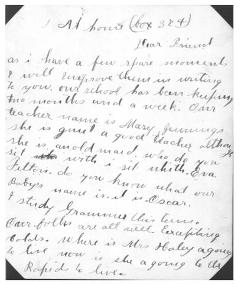 At home (box 324)
Dear Friend
as i have a few spare moments
i will improve them in writing
to you, our school has been keeping
two months and a week. Our
teacher name is Mary Jennings
she is quit a good teacher althoug
she is an old maid, who do you
sit with i sit whith Eva
Felton. do you know what our
babys name is. it is Oscar.
i study Grammer this term.
Our folks are all well Excepting
Colds. Where is Mrs Haley agoing
to live now is she agoing to
Rapids to live.